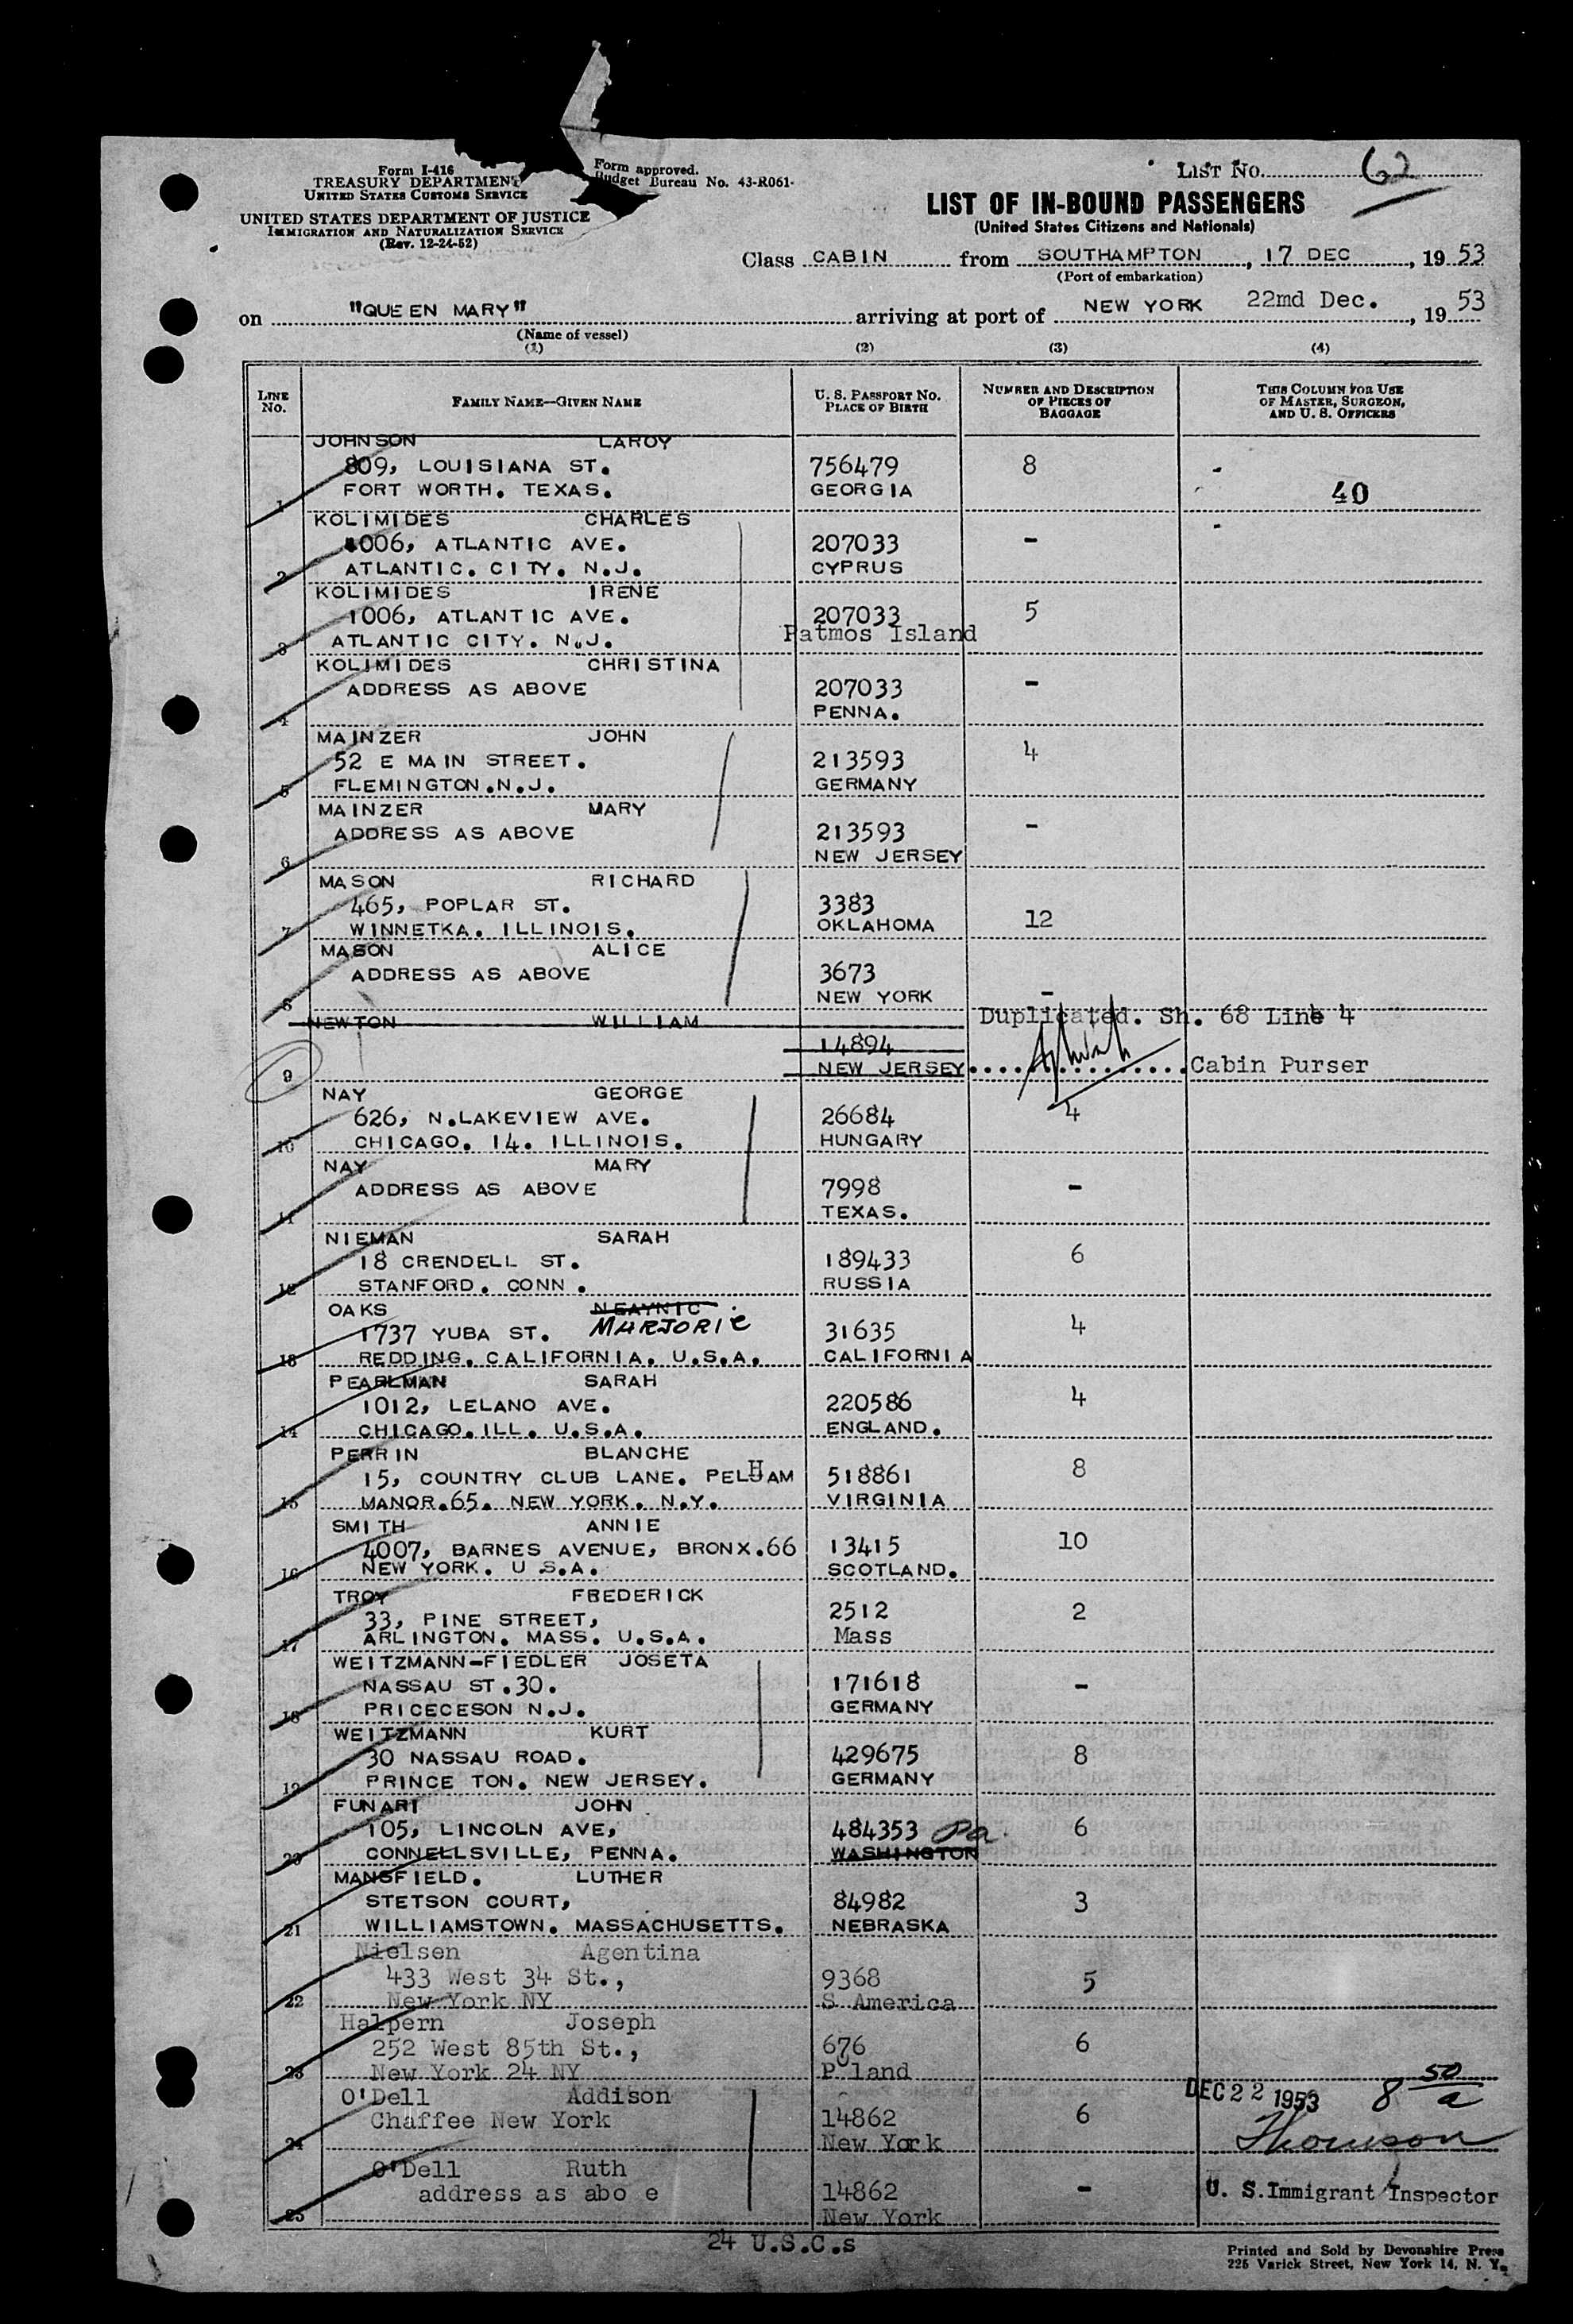 Form I-416
TREASURY DEPARTMENT
UNITED STATES CUSTOMS SERVICE
UNITED STATES DEPARTMENT OF JUSTICE
IMMIGRATION AND NATURALIZATION SERVICE
(Rev. 12-24-52)
Form approved.
Budget Bureau No. 43-R061-
LIST NO. 62
LIST OF IN-BOUND PASSENGERS
(United States Citizens and Nationals)
Class CABIN from SOUTHAMPTON, 17 DEC, 19 53
(Port of embarkation)
on "QUEEN MARY" arriving at port of NEW YORK 22md Dec., 19 53
(Name of vessel)
(1) (2) (3) (4)
LINE NO. FAMILY NAME—GIVEN NAME U. S. PASSPORT NO. PLACE OF BIRTH NUMBER AND DESCRIPTION OF PIECES OF BAGGAGE THIS COLUMN FOR USE OF MASTER, SURGEON, AND U. S. OFFICERS
JOHNSON LAROY
809, LOUISIANA ST. 756479 8 -
1 FORT WORTH. TEXAS. GEORGIA 40
KOLIMIDES CHARLES -
1006, ATLANTIC AVE. 207033 -
2 ATLANTIC. CITY. N.J. CYPRUS
KOLIMIDES IRENE
1006, ATLANTIC AVE. 207033 5
3 ATLANTIC CITY. N.J. Patmos Island
KOLIMIDES CHRISTINA
ADDRESS AS ABOVE 207033 -
4 PENNA.
MAINZER JOHN
52 E MAIN STREET. 213593 4
5 FLEMINGTON.N.J. GERMANY
MAINZER MARY
ADDRESS AS ABOVE 213593 -
6 NEW JERSEY
MASON RICHARD
465, POPLAR ST. 3383
7 WINNETKA. ILLINOIS. OKLAHOMA 12
MASON ALICE
ADDRESS AS ABOVE 3673
8 NEW YORK -
NEWTON WILLIAM Duplicated. Sh. 68 Line 4
14894
9 NEW JERSEY ................Cabin Purser
NAY GEORGE
626, N.LAKEVIEW AVE. 26684 4
10 CHICAGO. 14. ILLINOIS. HUNGARY
NAY MARY
ADDRESS AS ABOVE 7998 -
11 TEXAS.
NIEMAN SARAH
18 CRENDELL ST. 189433 6
12 STANFORD. CONN. RUSSIA
OAKS NEAYNIC
1737 YUBA ST. MARJORIE 31635 4
13 REDDING. CALIFORNIA. U.S.A. CALIFORNIA
PEARLMAN SARAH
1012, LELANO AVE. 220586 4
14 CHICAGO. ILL. U.S.A. ENGLAND.
PERRIN BLANCHE
15, COUNTRY CLUB LANE. PELHAM 518861 8
15 MANOR.65. NEW YORK. N.Y. VIRGINIA
SMITH ANNIE
4007, BARNES AVENUE, BRONX.66 13415 10
16 NEW YORK. U.S.A. SCOTLAND.
TROY FREDERICK
33, PINE STREET, 2512 2
17 ARLINGTON. MASS. U.S.A. Mass
WEITZMANN-FIEDLER JOSETA
NASSAU ST.30. 171618 -
18 PRICECESON N.J. GERMANY
WEITZMANN KURT
30 NASSAU ROAD. 429675 8
19 PRINCE TON. NEW JERSEY. GERMANY
FUNARI JOHN
105, LINCOLN AVE, 484353 Pa. 6
20 CONNELLSVILLE, PENNA. WASHINGTON
MANSFIELD. LUTHER
STETSON COURT, 84982 3
21 WILLIAMSTOWN. MASSACHUSETTS. NEBRASKA
Nielsen Agentina
433 West 34 St., 9368 5
22 New York NY S America
Halpern Joseph
252 West 85th St., 676 6
23 New York 24 NY Poland
O'Dell Addison DEC 22 1953 8 50/a
Chaffee New York 14862 6
24 New York Thomson
O'Dell Ruth
address as abo e 14862 - U. S. Immigrant Inspector
25 New York
24 U.S.C.s
Printed and Sold by Devonshire Press
225 Varick Street, New York 14, N. Y.